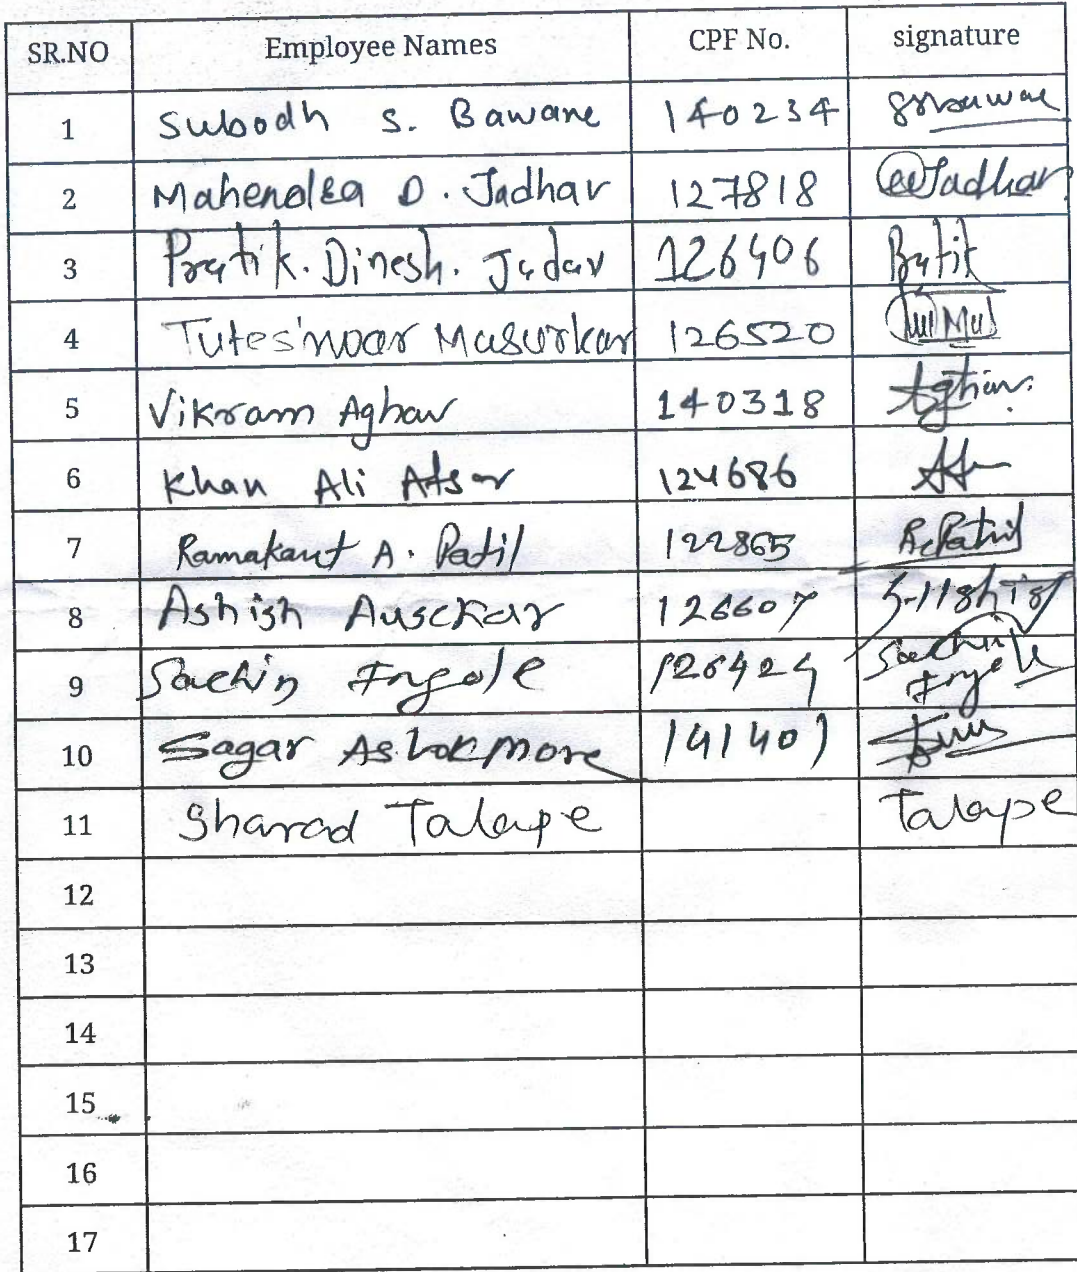 SR.NO Employee Names CPF No. signature
1 Subodh S. Bawane 140234
2 Mahendra D. Jadhav 127818 Jadhav
3 Pratik. Dinesh. Jadav 126406
4 Masurkar 126520
5 Vikram Aghav 140318
6 Khan Ali Afsar 124686
7 Ramakant A. Patil 122865 Patil
8 Ashish Ausekar 126607
9 Sachin Ingole 126424 Sachin Ingole
10 Sagar Ashok More 141401
11 Sharad Talape Talape
12
13
14
15
16
17